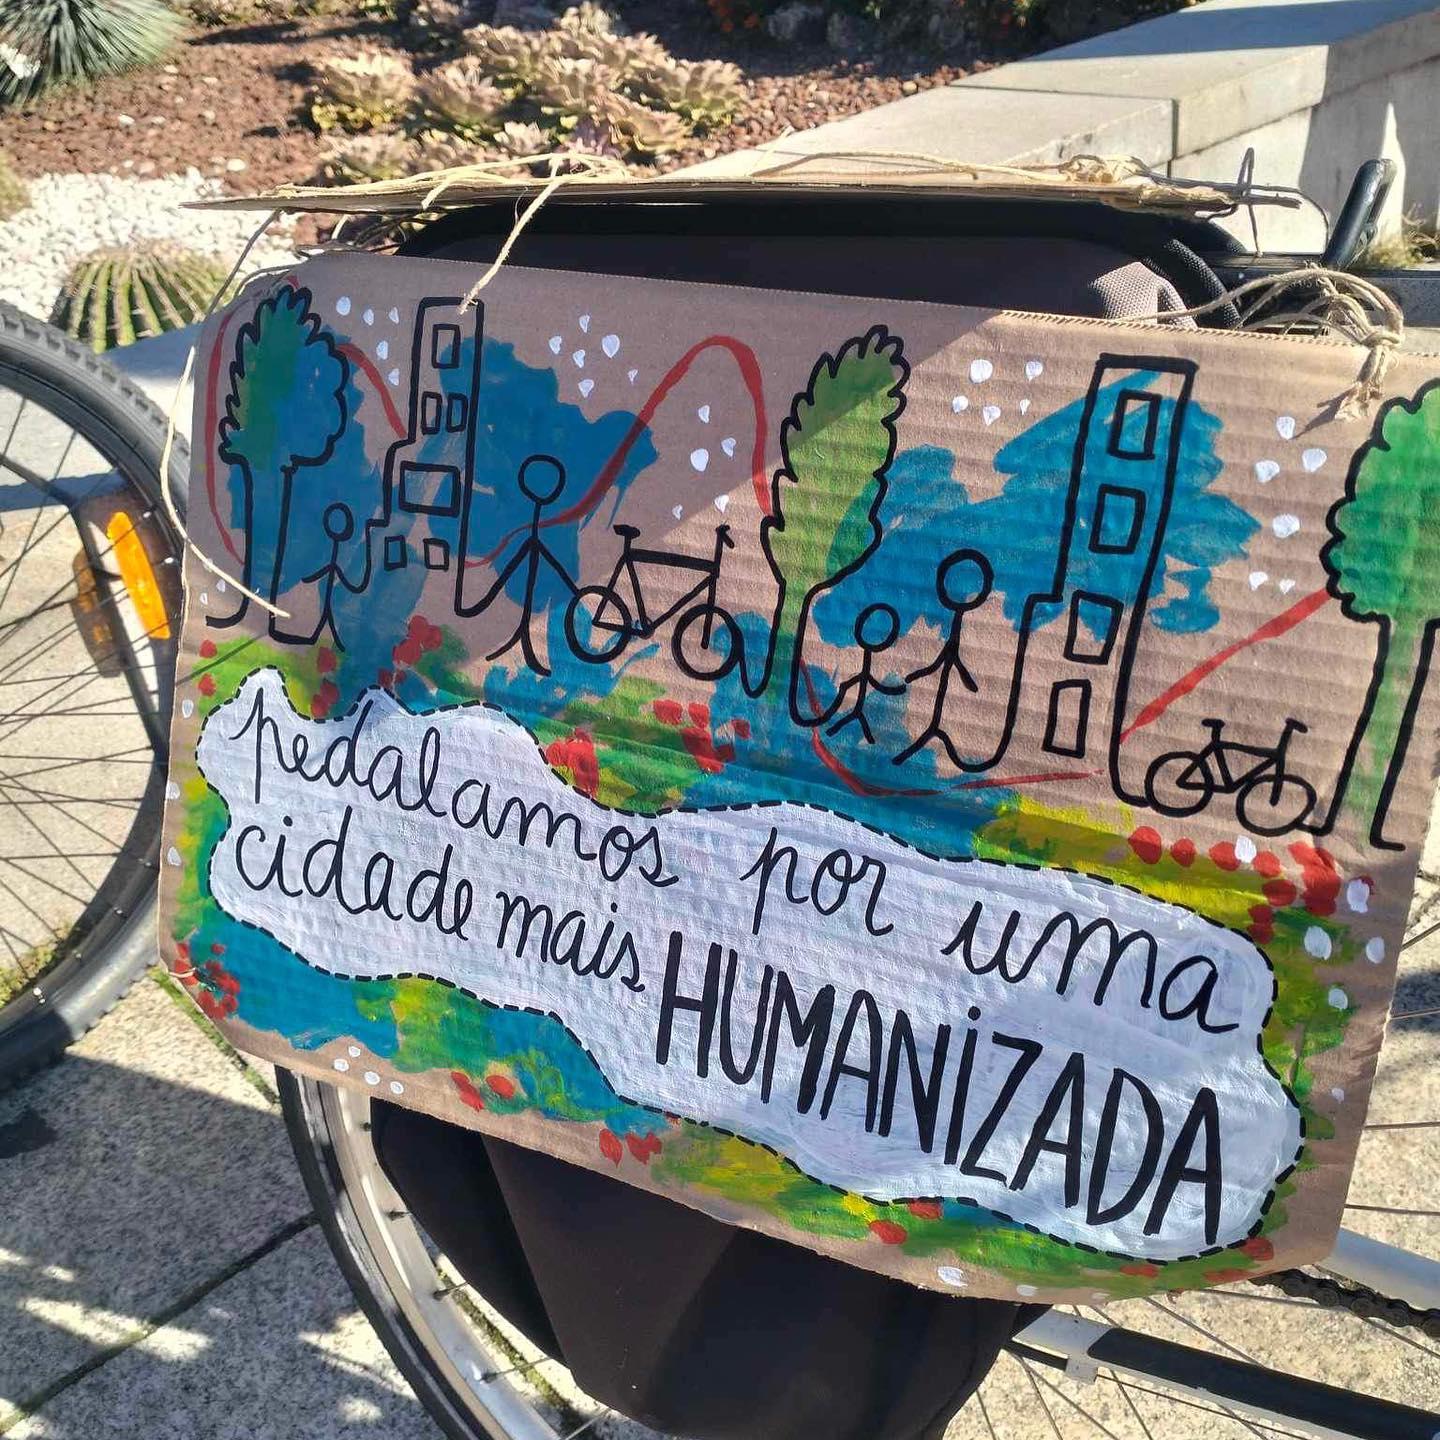 pedalamos por uma
cidade mais HUMANIZADA